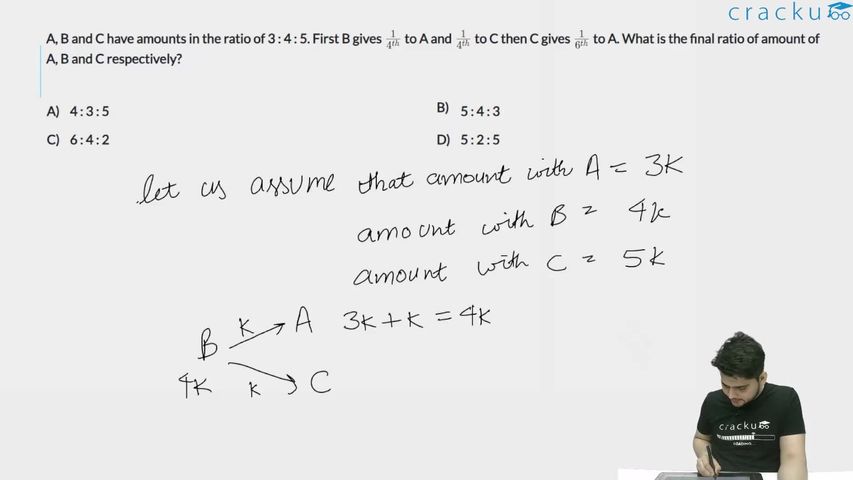 cracku
A, B and C have amounts in the ratio of 3 : 4 : 5. First B gives 1/4th to A and 1/4th to C then C gives 1/6th to A. What is the final ratio of amount of
A, B and C respectively?
A) 4 : 3 : 5
B) 5 : 4 : 3
C) 6 : 4 : 2
D) 5 : 2 : 5
let us assume that amount with A = 3K
amount with B = 4k
amount with C = 5k
B K A 3K + K = 4K
4K K C
cracku
LOADING...